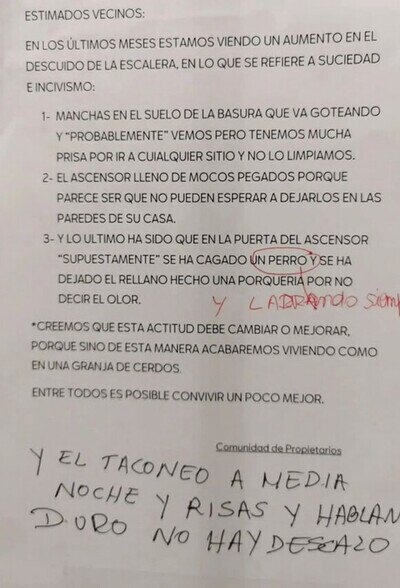 ESTIMADOS VECINOS:
EN LOS ÚLTIMOS MESES ESTAMOS VIENDO UN AUMENTO EN EL
DESCUIDO DE LA ESCALERA, EN LO QUE SE REFIERE A SUCIEDAD
E INCIVISMO:
1- MANCHAS EN EL SUELO DE LA BASURA QUE VA GOTEANDO
Y "PROBABLEMENTE" VEMOS PERO TENEMOS MUCHA
PRISA POR IR A CUIALQUIER SITIO Y NO LO LIMPIAMOS.
2- EL ASCENSOR LLENO DE MOCOS PEGADOS PORQUE
PARECE SER QUE NO PUEDEN ESPERAR A DEJARLOS EN LAS
PAREDES DE SU CASA.
3- Y LO ULTIMO HA SIDO QUE EN LA PUERTA DEL ASCENSOR
"SUPUESTAMENTE" SE HA CAGADO UN PERRO Y SE HA
DEJADO EL RELLANO HECHO UNA PORQUERIA POR NO
DECIR EL OLOR.
Y LADRando siem
*CREEMOS QUE ESTA ACTITUD DEBE CAMBIAR O MEJORAR,
PORQUE SINO DE ESTA MANERA ACABAREMOS VIVIENDO COMO
EN UNA GRANJA DE CERDOS.
ENTRE TODOS ES POSIBLE CONVIVIR UN POCO MEJOR.
Comunidad de Propietarios
Y EL TACONEO A MEDIA
NOCHE Y RISAS Y HABLAN
DURO NO HAY DESCALO